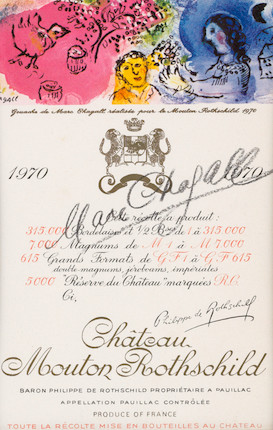 Gouache de Marc Chagall réalisée pour le Mouton Rothschild 1970
1970 1970
Marc Chagall
Cette récolte a produit:
315.000 Bordelaises et ½ Bses de 1 à 315.000
7.000 Magnums de M 1 à M 7.000
615 Grands Formats de G F 1 à G F 615
double-magnums, jeroboams, impériales
5000 "Réserve du Château" marquées R.C.
Ci,
Philippe de Rothschild
Château
Mouton Rothschild
BARON PHILIPPE DE ROTHSCHILD PROPRIÉTAIRE A PAUILLAC
APPELLATION PAUILLAC CONTRÔLÉE
PRODUCE OF FRANCE
TOUTE LA RÉCOLTE MISE EN BOUTEILLES AU CHÂTEAU